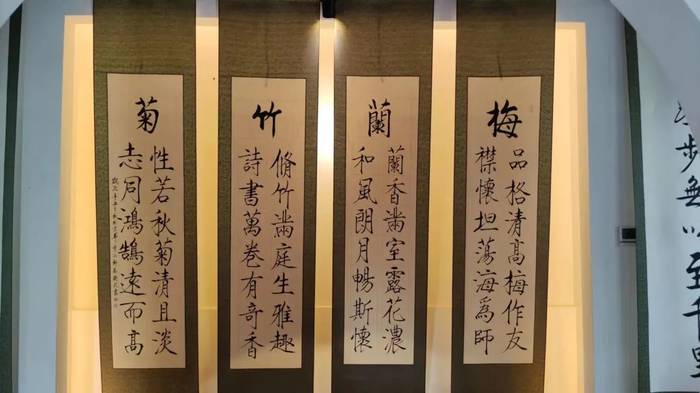 梅
品格清高梅作友
襟懷坦蕩海爲師
蘭
蘭香滿室露花濃
和風朗月暢斯懷
竹
脩竹滿庭生雅趣
詩書萬卷有奇香
菊
性若秋菊清且淡
志同鴻鵠遠而高
步無以至千里